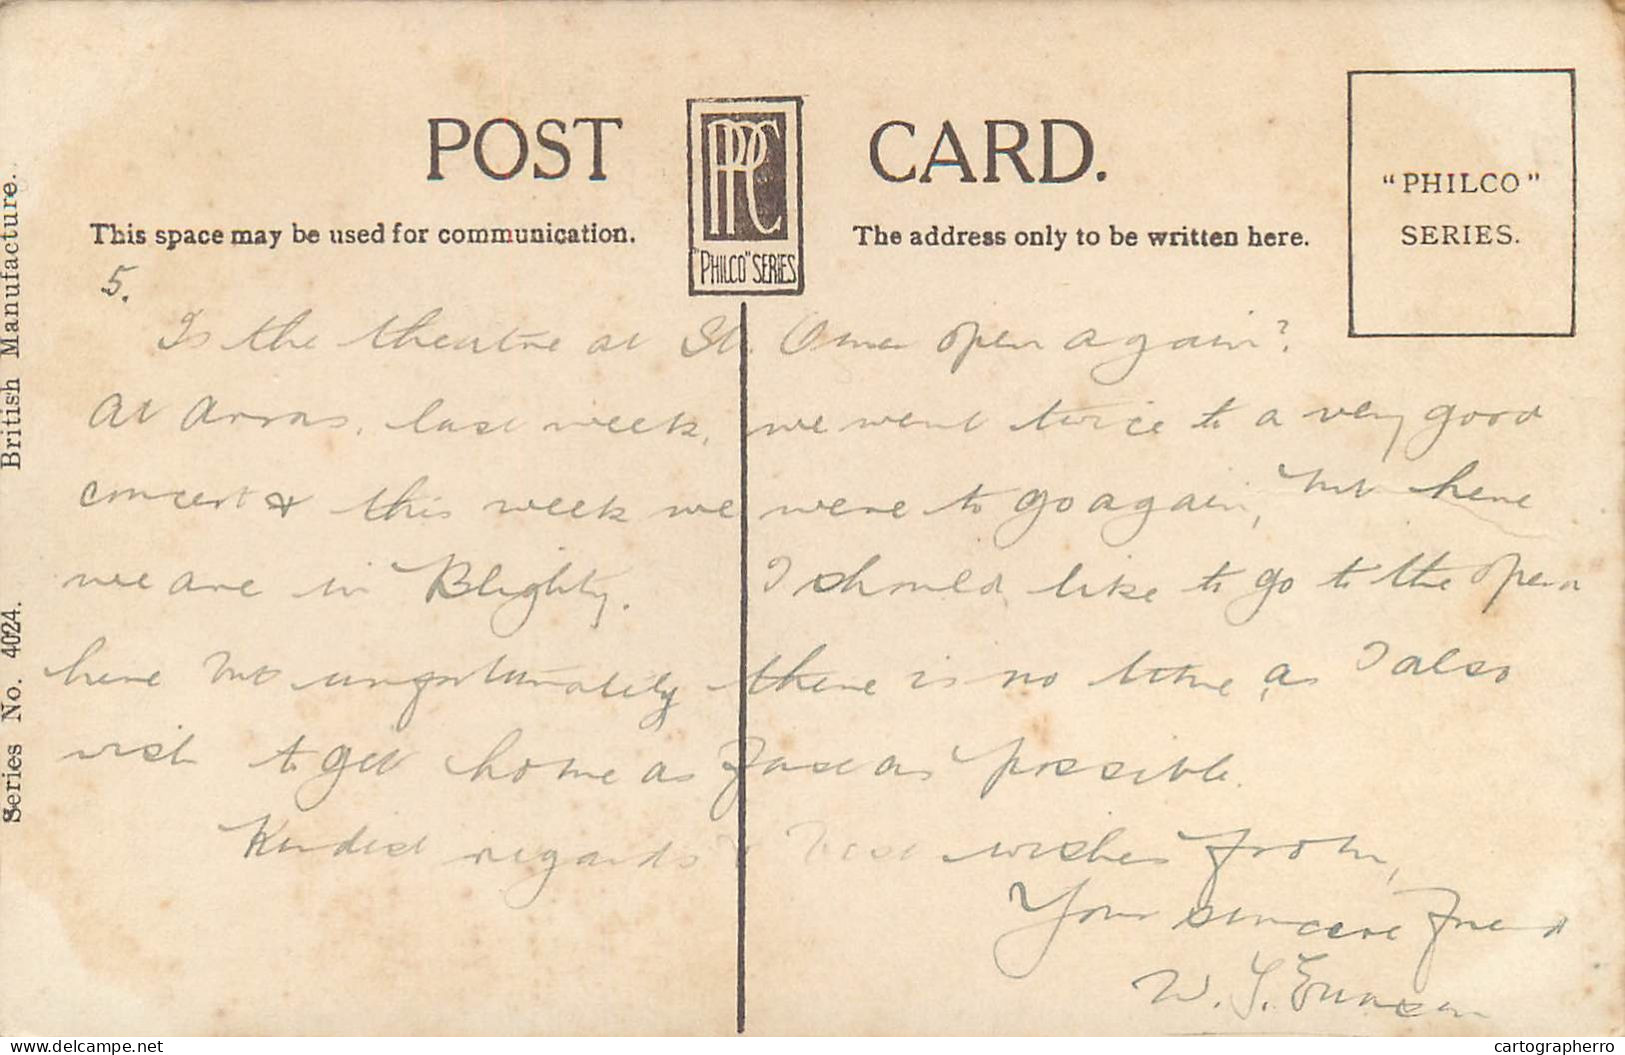 POST CARD.
This space may be used for communication.
The address only to be written here.
PPC
"PHILCO" SERIES
"PHILCO"
SERIES.
British Manufacture.
Series No. 4024.
5.
Is the theatre at St. Omer open again?
At Arras, last week, we went twice to a very good
concert & this week we were to go again, but here
we are in Blighty. I should like to go to the opera
here but unfortunately there is no time, as I also
wish to get home as fast as possible.
Kindest regards & best wishes from,
Your sincere friend
W.
delcampe.net
cartographerro